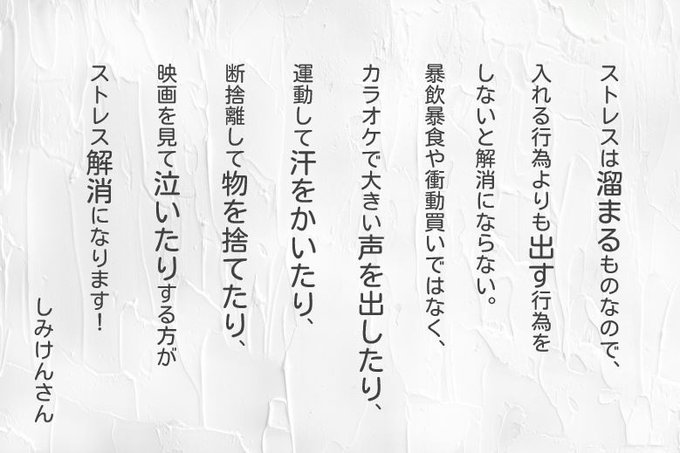 ストレスは溜まるものなので、
入れる行為よりも出す行為を
しないと解消にならない。
暴飲暴食や衝動買いではなく、
カラオケで大きい声を出したり、
運動して汗をかいたり、
断捨離して物を捨てたり、
映画を見て泣いたりする方が
ストレス解消になります！
しみけんさん